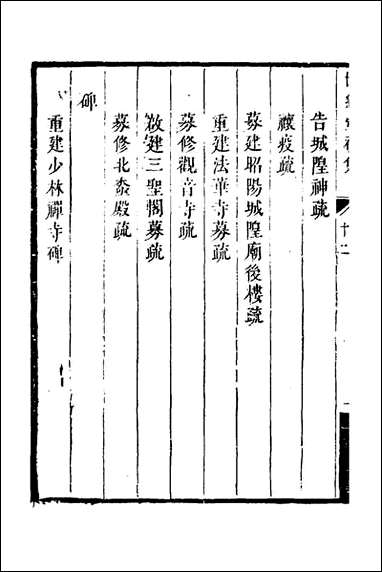 告城隍神疏
禳疫疏
募建昭陽城隍廟後樓疏
重建法華寺募疏
募修觀音寺疏
改建三聖閣募疏
募修北泰殿疏
碑
重建少林禪寺碑